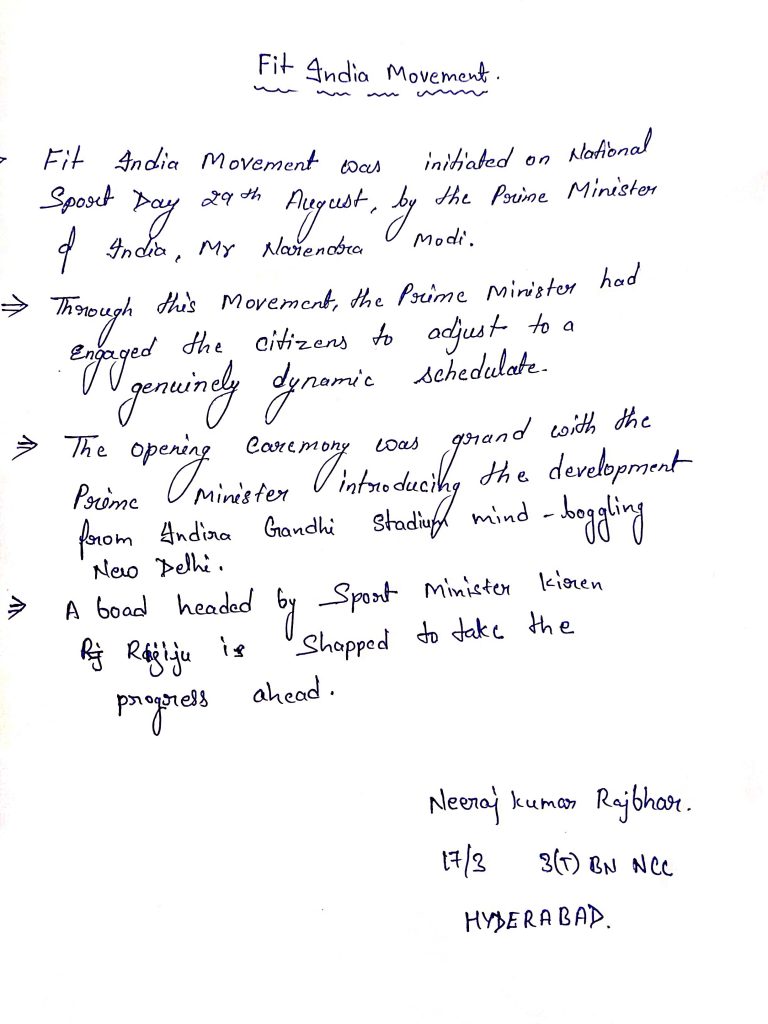 Fit India Movement.
Fit India Movement was initiated on National
Sport Day 29th August, by the Prime Minister
of India, Mr Narendra Modi.
⇒ Through this Movement, the Prime Minister had
engaged the citizens to adjust to a
genuinely dynamic schedulate.
⇒ The opening Caremony was grand with the
Prime Minister introducing the development
from Indira Gandhi Stadium mind-boggling
New Delhi.
⇒ A boad headed by Sport Minister Kiren
Rijiju is Shapped to take the
progress ahead.
Neeraj Kumar Rajbhar.
17/3 3(T) BN NCC
HYDERABAD.